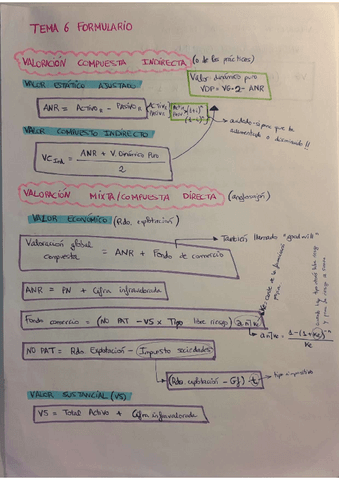 TEMA 6 FORMULARIO
VALORACIÓN COMPUESTA INDIRECTA (o de los prácticos)
VALOR ESTÁTICO AJUSTADO
Valor dinámico puro
VDP = VG·2 - ANR
ANR = ACTIVO R - PASIVO R
ACTIVO
PASIVO
cuidado siempre que ha aumentado o disminuido!!
VALOR COMPUESTO INDIRECTO
VC Ind = ANR + V. Dinámico Puro
2
VALORACIÓN MIXTA/COMPUESTA DIRECTA (anglosajón)
VALOR ECONÓMICO (Rdo. explotación)
También llamado "good will"
Valoración global compuesta = ANR + Fondo de comercio
ANR = PN + Cifra infravalorada
Fondo comercio = (NO PAT - VS × Tipo libre riesgo) a n̅| Ke
a n̅| Ke = 1-(1+Ke)⁻ⁿ
Ke
NO PAT = Rdo. Explotación - Impuesto sociedades
(Rdo. explotación - Gf) · t → tipo impositivo
VALOR SUSTANCIAL (VS)
VS = Total Activo + Cifra infravalorada